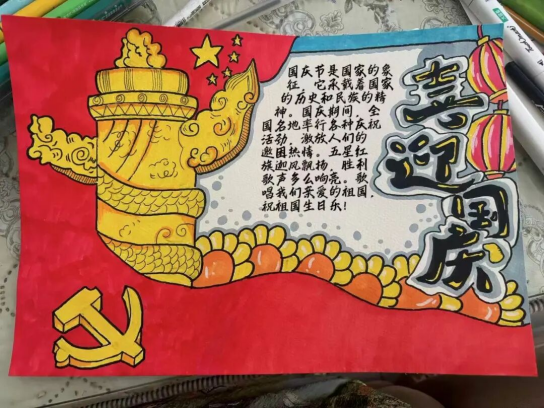 国庆节是国家的象
征，它承载着国家
的历史和民族的精
神。国庆期间，全
国各地举行各种庆祝
活动，激放人们的
爱国热情。五星红
旗迎风飘扬，胜利
歌声多么响亮。歌
唱我们亲爱的祖国，
祝祖国生日乐！
喜迎国庆